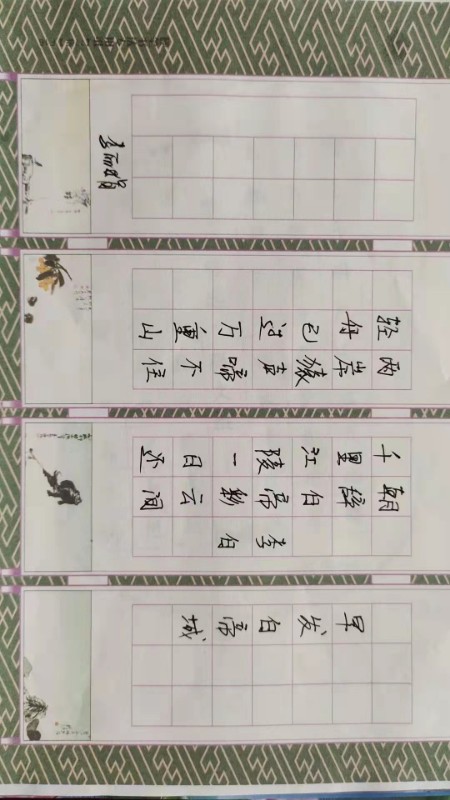 早发白帝城
李白
朝辞白帝彩云间
千里江陵一日还
两岸猿声啼不住
轻舟已过万重山